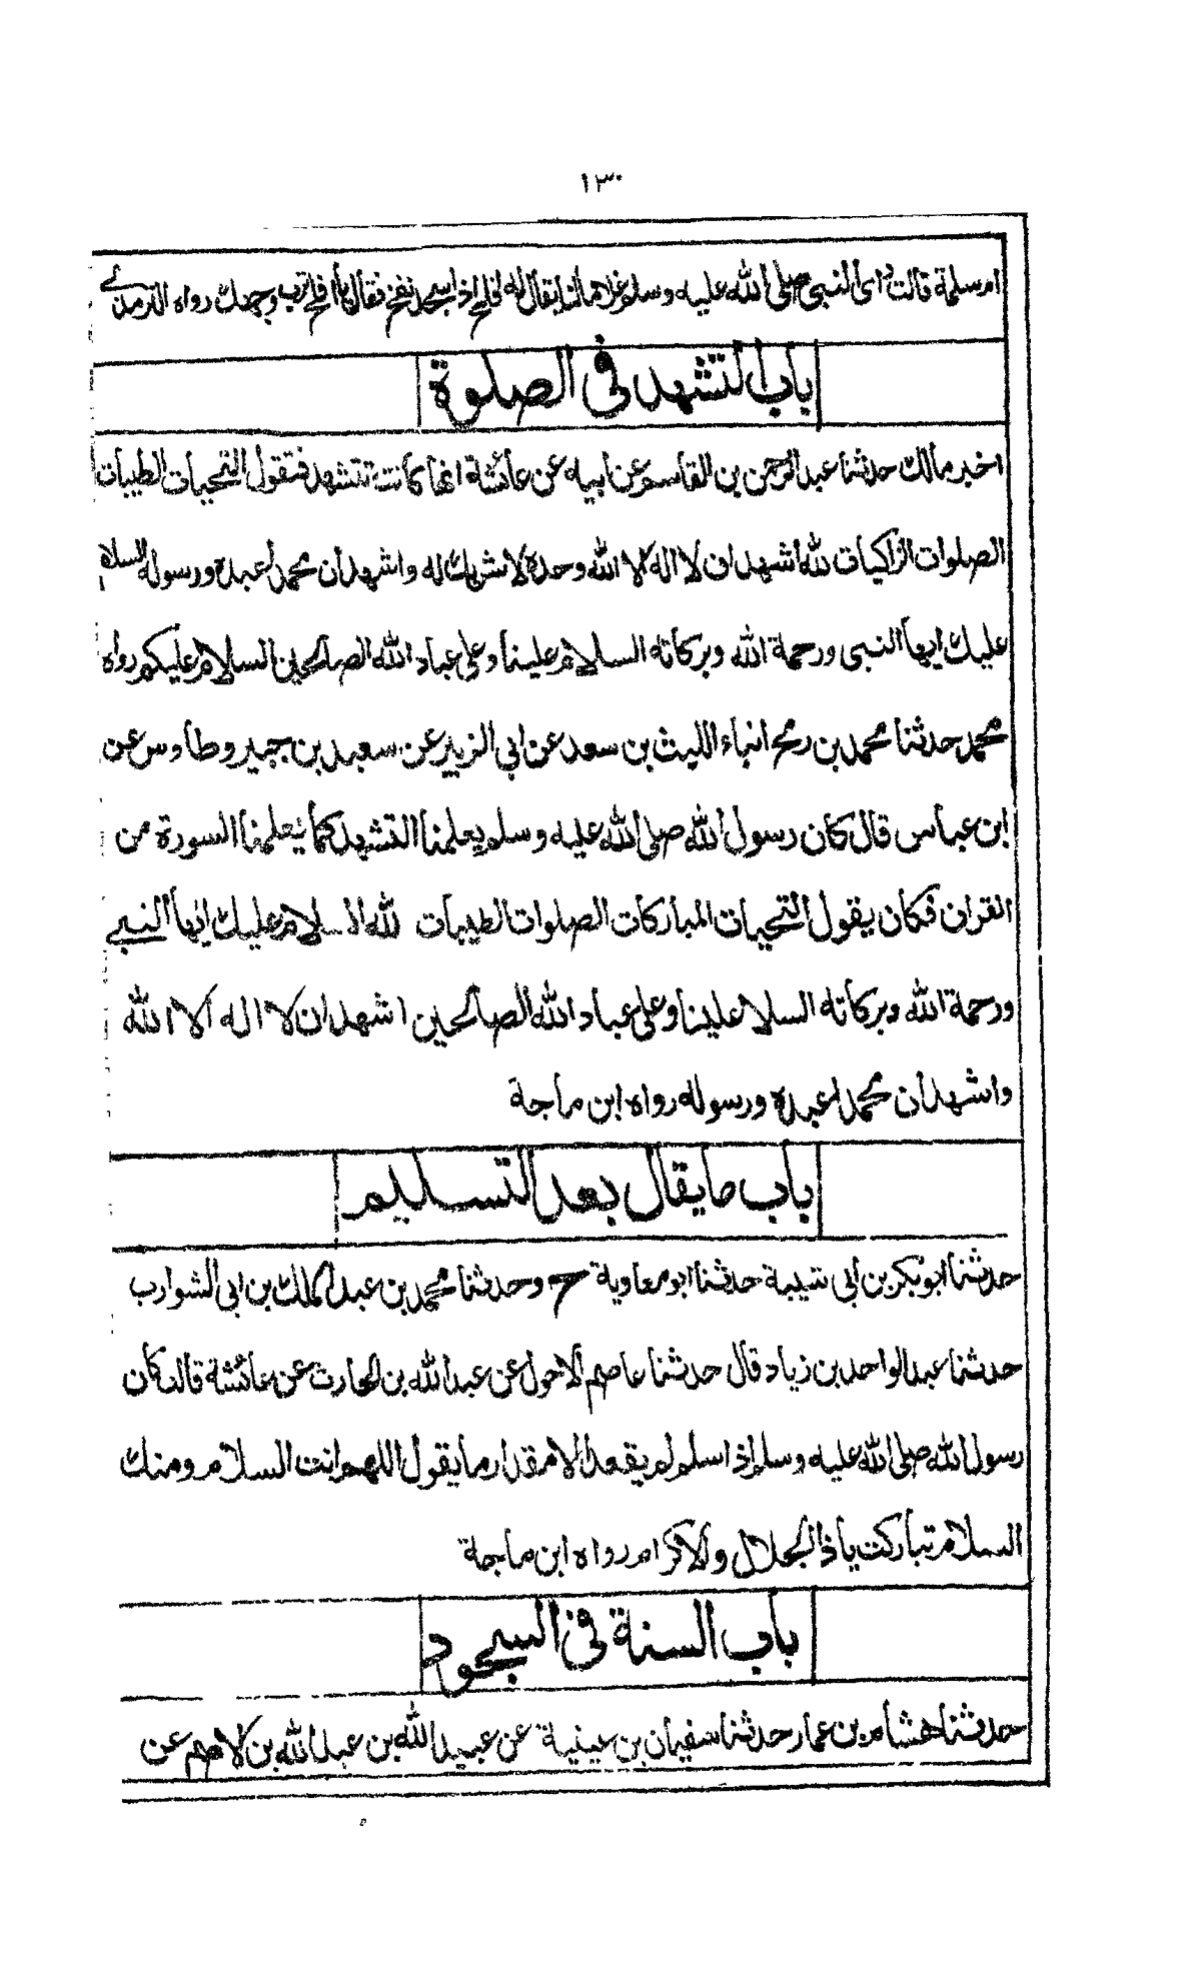 ١٣٠
ام سلمة قالت رأى النبى صلى الله عليه وسلم غلاما لنا يقال له افلح اذا سجد نفخ فقال يا افلح ترب وجهك رواه الترمذے
باب التشهد فى الصلوة
اخبر مالك حدثنا عبد الرحمن بن القاسم عن ابيه عن عائشة انها كانت تتشهد فتقول التحيات الطيبات
الصلوات الزاكيات لله اشهد ان لا اله الا الله وحده لا شريك له واشهد ان محمدا عبده ورسوله السلام
عليك ايها النبى ورحمة الله وبركاته السلام علينا وعلى عباد الله الصالحين السلام عليكم رواه
محمد حدثنا محمد بن رمح انباء الليث بن سعد عن ابى الزبير عن سعيد بن جبير وطاوس عن
ابن عباس قال كان رسول الله صلى الله عليه وسلم يعلمنا التشهد كما يعلمنا السورة من
القران فكان يقول التحيات المباركات الصلوات الطيبات لله السلام عليك ايها النبے
ورحمة الله وبركاته السلا علينا وعلى عباد الله الصالحين اشهد ان لا اله الا الله
واشهد ان محمدا عبده ورسوله رواه ابن ماجة
باب ما يقال بعد التسليم
حدثنا ابو بكر بن ابى شيبة حدثنا ابو معاوية ح وحدثنا محمد بن عبد الملك بن ابى الشوارب
حدثنا عبد الواحد بن زياد قال حدثنا عاصم الاحول عن عبد الله بن الحارث عن عائشة قالت كان
رسول الله صلى الله عليه وسلم اذا سلم لم يقعد الا مقدار ما يقول اللهم انت السلام ومنك
السلام تباركت يا ذا الجلال والاكرام رواه ابن ماجة
باب السنة فى السجود
حدثنا هشام بن عمار حدثنا سفيان بن عيينة عن عبيد الله بن عبد الله بن الاصم عن